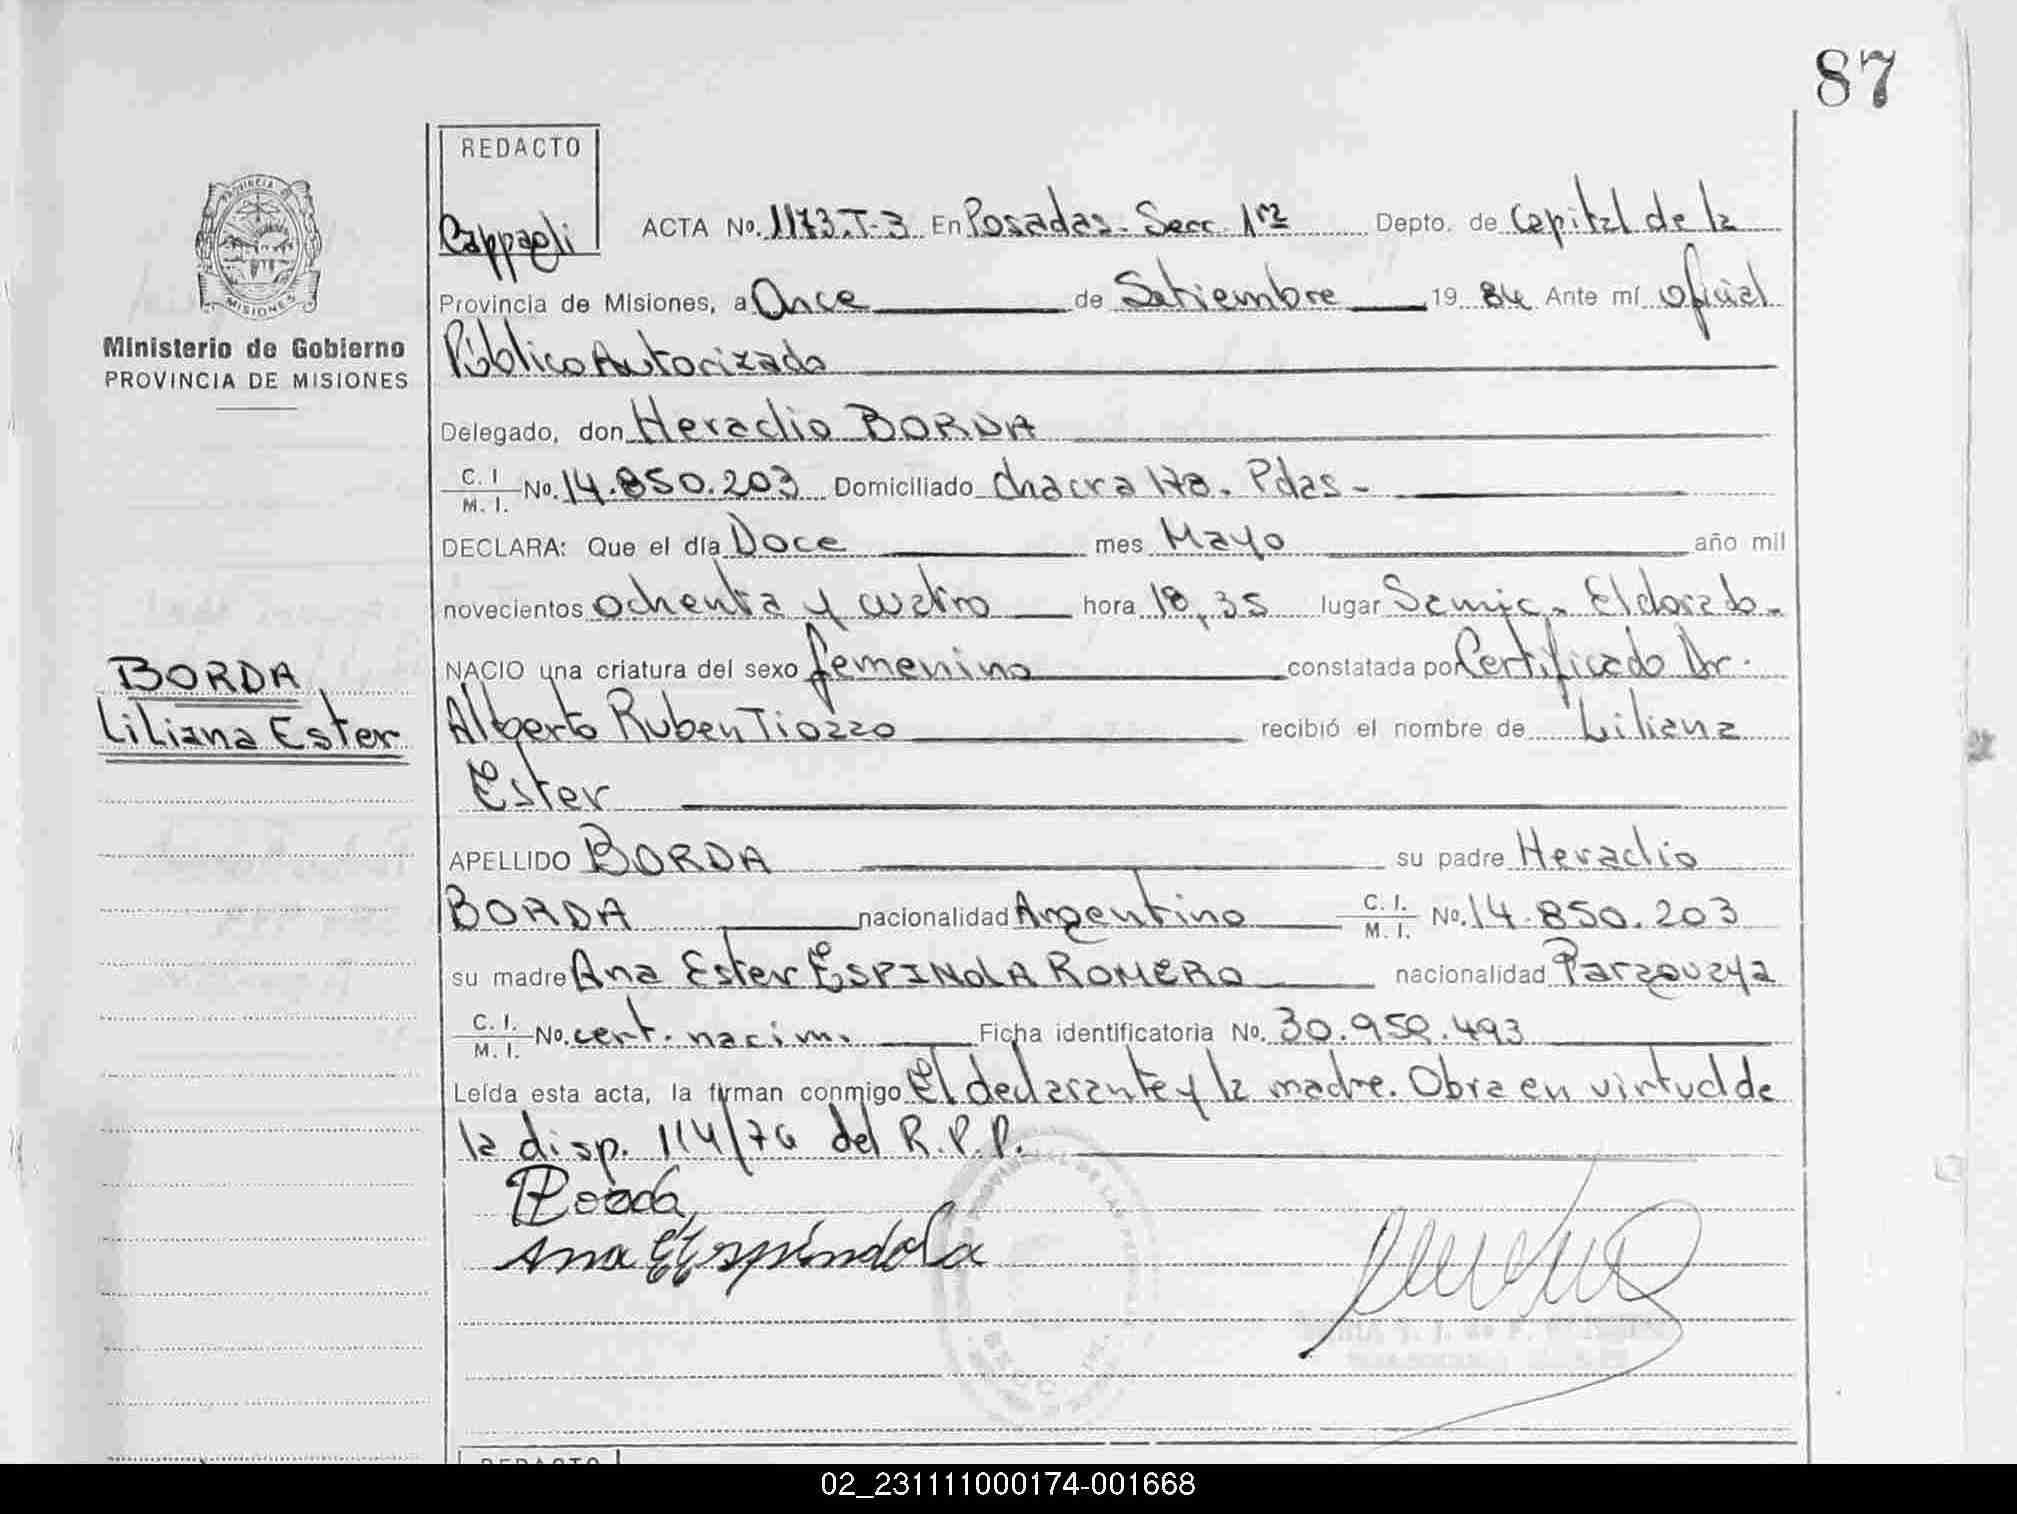 87
REDACTO
Cappaeli
ACTA No. 1173.T-3 En Posadas. Secc. 1ra Depto. de Capital de la
Provincia de Misiones, a Once de Setiembre 19 84 Ante mí oficial
Público Autorizado
Ministerio de Gobierno
PROVINCIA DE MISIONES
Delegado, don Heraclio BORDA
C. I / M. I. No. 14.850.203 Domiciliado chacra 178. Pdas-
DECLARA: Que el día Doce mes Mayo año mil
novecientos ochenta y cuatro hora 18,35 lugar Samic. Eldorado-
NACIO una criatura del sexo femenino constatada por Certificado Dr.
Alberto Ruben Tiozzo recibió el nombre de Liliana
Ester
BORDA
Liliana Ester
APELLIDO BORDA su padre Heraclio
BORDA nacionalidad Argentino C. I. / M. I. No. 14.850.203
su madre Ana Ester ESPINOLA ROMERO nacionalidad Paraguaya
C. I. / M. I. No. cert. nacim. Ficha identificatoria No. 30.950.493
Leída esta acta, la firman conmigo El declarante y la madre. Obra en virtud de
la disp. 114/76 del R.P.P.
Borda
Ana E Espíndola
REDACTO
02_231111000174-001668